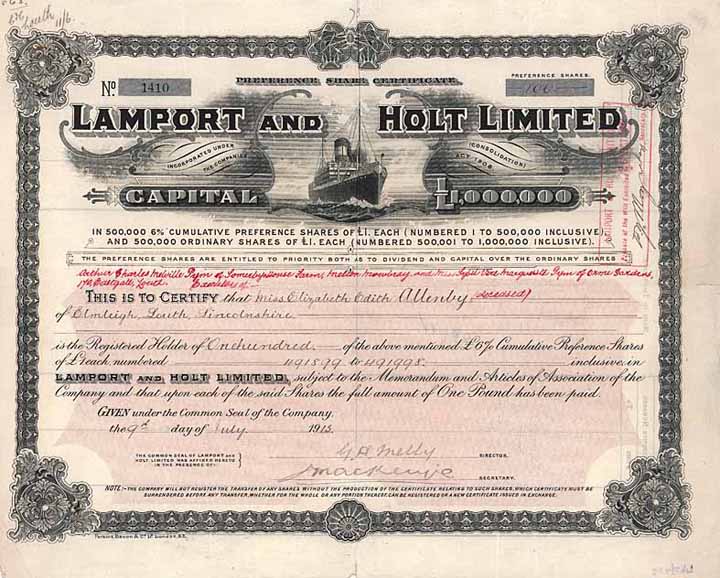 Louth 11/6.
PREFERENCE SHARE CERTIFICATE.
No 1410
PREFERENCE SHARES.
100
LAMPORT AND HOLT LIMITED
INCORPORATED UNDER THE COMPANIES (CONSOLIDATION) ACT 1908
CAPITAL £1,000,000
IN 500,000 6% CUMULATIVE PREFERENCE SHARES OF £1. EACH (NUMBERED 1 TO 500,000 INCLUSIVE)
AND 500,000 ORDINARY SHARES OF £1. EACH (NUMBERED 500,001 TO 1,000,000 INCLUSIVE).
THE PREFERENCE SHARES ARE ENTITLED TO PRIORITY BOTH AS TO DIVIDEND AND CAPITAL OVER THE ORDINARY SHARES
Arthur Charles Melville Pym of Somerby House Farm, Melton Mowbray and Miss Sybil Margaret Pym of Orme Gardens,
Eastgate, Louth. Executors of
THIS IS TO CERTIFY that Miss Elizabeth Edith Allenby (deceased)
of Elmleigh, Louth, Lincolnshire
is the Registered Holder of One hundred of the above mentioned £6% Cumulative Preference Shares
of £1 each numbered 491899 to 491998 inclusive, in
LAMPORT AND HOLT LIMITED, subject to the Memorandum and Articles of Association of the
Company and that upon each of the said Shares the full amount of One Pound has been paid.
GIVEN under the Common Seal of the Company.
the 9th day of July 1913.
THE COMMON SEAL OF LAMPORT AND
HOLT LIMITED WAS AFFIXED HERETO
IN THE PRESENCE OF:
G H Melly DIRECTOR.
Mackenzie SECRETARY.
NOTE:- THE COMPANY WILL NOT REGISTER THE TRANSFER OF ANY SHARES WITHOUT THE PRODUCTION OF THE CERTIFICATE RELATING TO SUCH SHARES, WHICH CERTIFICATE MUST BE
SURRENDERED BEFORE ANY TRANSFER, WHETHER FOR THE WHOLE OR ANY PORTION THEREOF, CAN BE REGISTERED OR A NEW CERTIFICATE ISSUED IN EXCHANGE.
Perkins Bacon & Co Ld London, E.C.